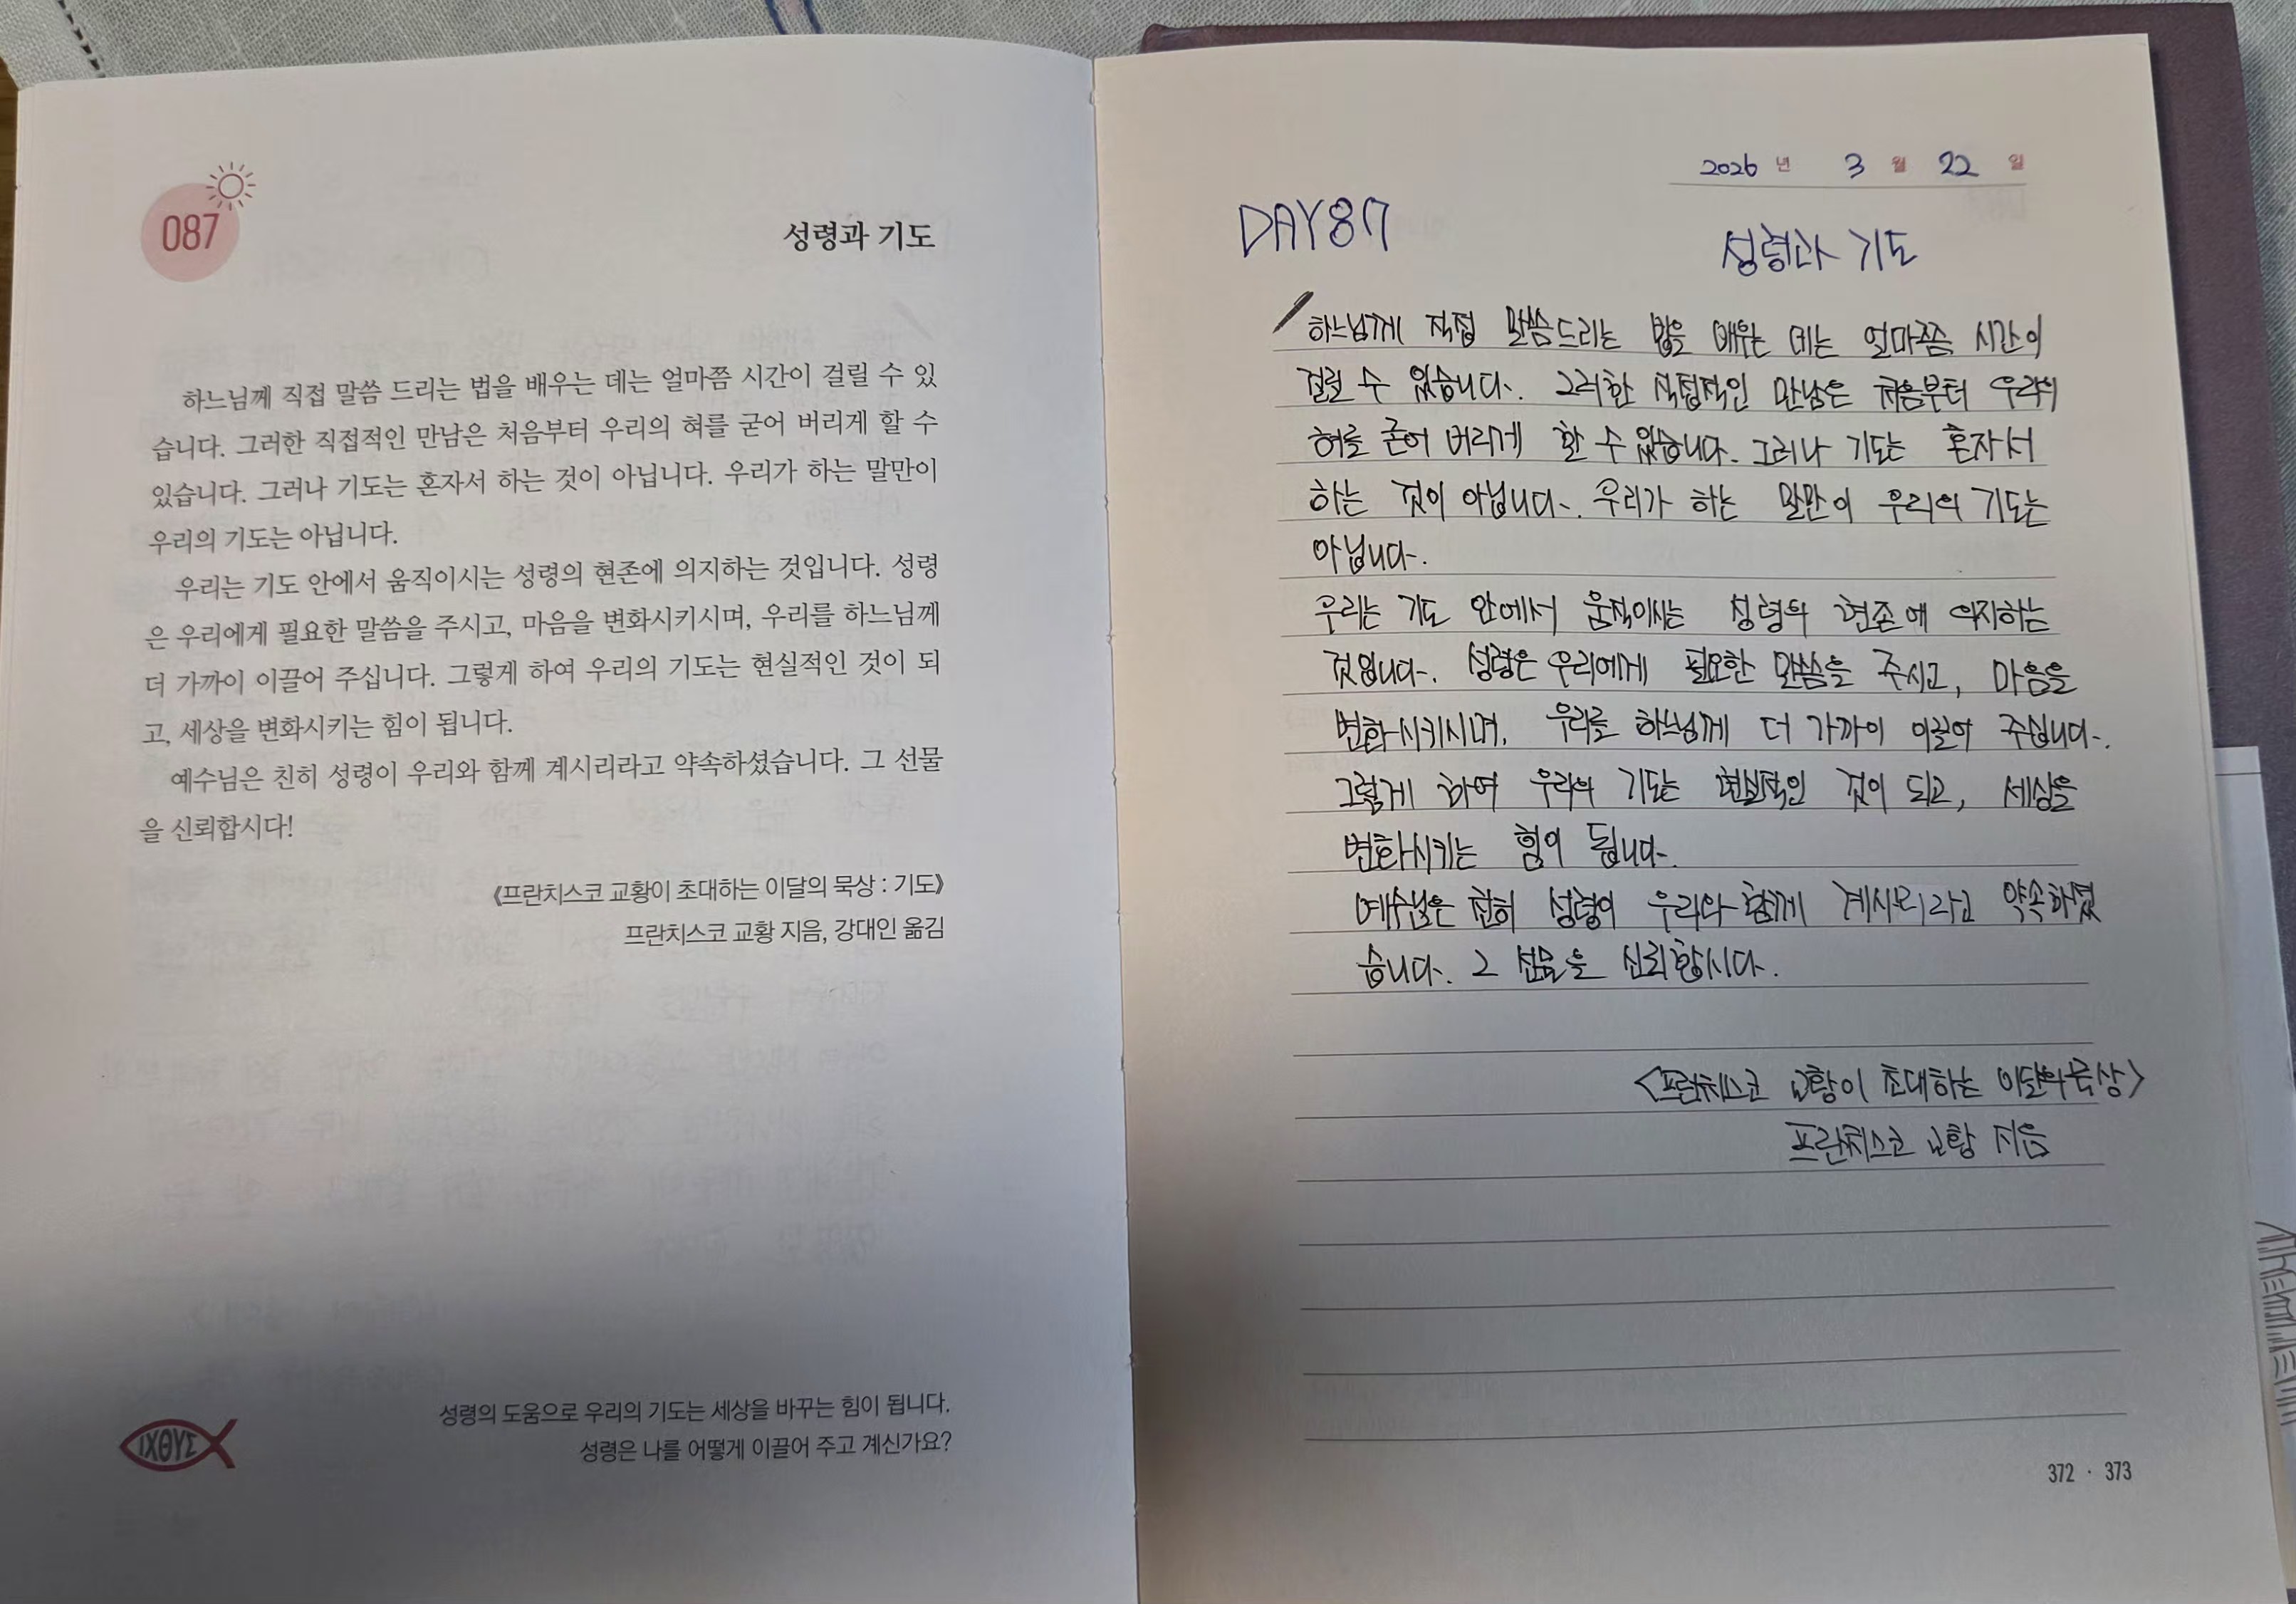 087
성령과 기도
하느님께 직접 말씀 드리는 법을 배우는 데는 얼마쯤 시간이 걸릴 수 있
습니다. 그러한 직접적인 만남은 처음부터 우리의 혀를 굳어 버리게 할 수
있습니다. 그러나 기도는 혼자서 하는 것이 아닙니다. 우리가 하는 말만이
우리의 기도는 아닙니다.
우리는 기도 안에서 움직이시는 성령의 현존에 의지하는 것입니다. 성령
은 우리에게 필요한 말씀을 주시고, 마음을 변화시키시며, 우리를 하느님께
더 가까이 이끌어 주십니다. 그렇게 하여 우리의 기도는 현실적인 것이 되
고, 세상을 변화시키는 힘이 됩니다.
예수님은 친히 성령이 우리와 함께 계시리라고 약속하셨습니다. 그 선물
을 신뢰합시다!
《프란치스코 교황이 초대하는 이달의 묵상 : 기도》
프란치스코 교황 지음, 강대인 옮김
ΙΧΘΥΣ
성령의 도움으로 우리의 기도는 세상을 바꾸는 힘이 됩니다.
성령은 나를 어떻게 이끌어 주고 계신가요?
2026 년 3 월 22 일
DAY87
성령과 기도
하느님께 직접 말씀드리는 법을 배우는 데는 얼마쯤 시간이
걸릴 수 있습니다. 그러한 직접적인 만남은 처음부터 우리의
혀를 굳어 버리게 할 수 있습니다. 그러나 기도는 혼자서
하는 것이 아닙니다. 우리가 하는 말만이 우리의 기도는
아닙니다.
우리는 기도 안에서 움직이시는 성령의 현존에 의지하는
것입니다. 성령은 우리에게 필요한 말씀을 주시고, 마음을
변화시키시며, 우리를 하느님께 더 가까이 이끌어 주십니다.
그렇게 하여 우리의 기도는 현실적인 것이 되고, 세상을
변화시키는 힘이 됩니다.
예수님은 친히 성령이 우리와 함께 계시리라고 약속하셨
습니다. 그 선물을 신뢰합시다.
<프란치스코 교황이 초대하는 이달의 묵상>
프란치스코 교황 지음
372 · 373